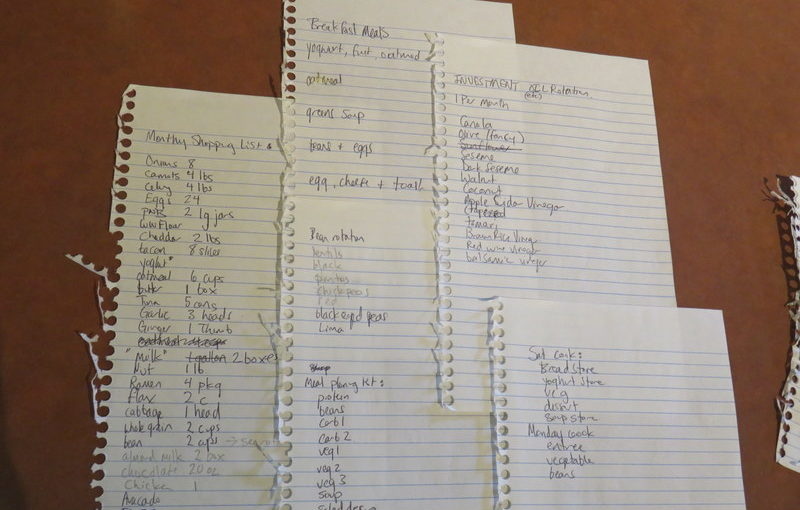 Monthly Shopping List
Onions 8
Carrots 4 lbs
Celery 4 lbs
Eggs 24
2 lg jars
WW Flour
Cheddar 2 lbs
bacon 8 slices
yoght
oatmeal 6 cups
butter 1 box
Tuna 5 cans
Garlic 3 heads
Ginger 1 Thumb
"Milk" 1 gallon 2 boxes
Nut 1 lb
Ramen 4 pkg
Flax 2 c
cabbage 1 head
whole grain 2 cups
bean 2 cups →
almond milk 2 box
chocolate 20 oz
Chicken 1
Avacado
Breakfast Meals
yoghurt, fruit, oatmeal
oatmeal
greens soup
beans + eggs
egg, cheese + toast
Bean rotation
lentils
black
pintos
chickpeas
red
blackeyed peas
Lima
Meal planing kt:
protein
beans
carb 1
carb 2
veg 1
veg 2
veg 3
soup
salad
INVESTMENT OIL Rotation
(etc)
1 Per Month
Canola
Olive (fancy)
Sunflower
Seseme
Dark Seseme
Walnut
Coconut
Apple Cyder Vinegar
tamari
Brown Rice Vineg
Red wine vinegar
balsamic vinegar
Sat cook:
Bread store
yoghurt store
veg
desert
soup store
Monday cook
entree
vegetable
beans